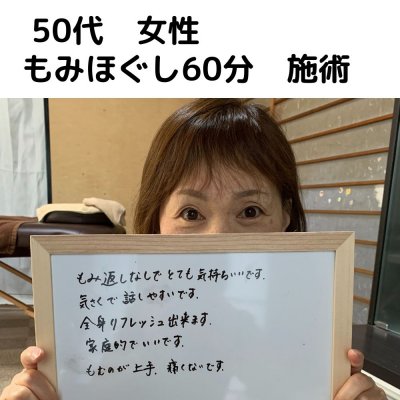 50代　女性
もみほぐし60分　施術
もみ返しなしでとても気持ちいいです.
気さくで話しやすいです.
全身リフレッシュ出来ます.
家庭的でいいです.
もむのが上手.痛くないです.